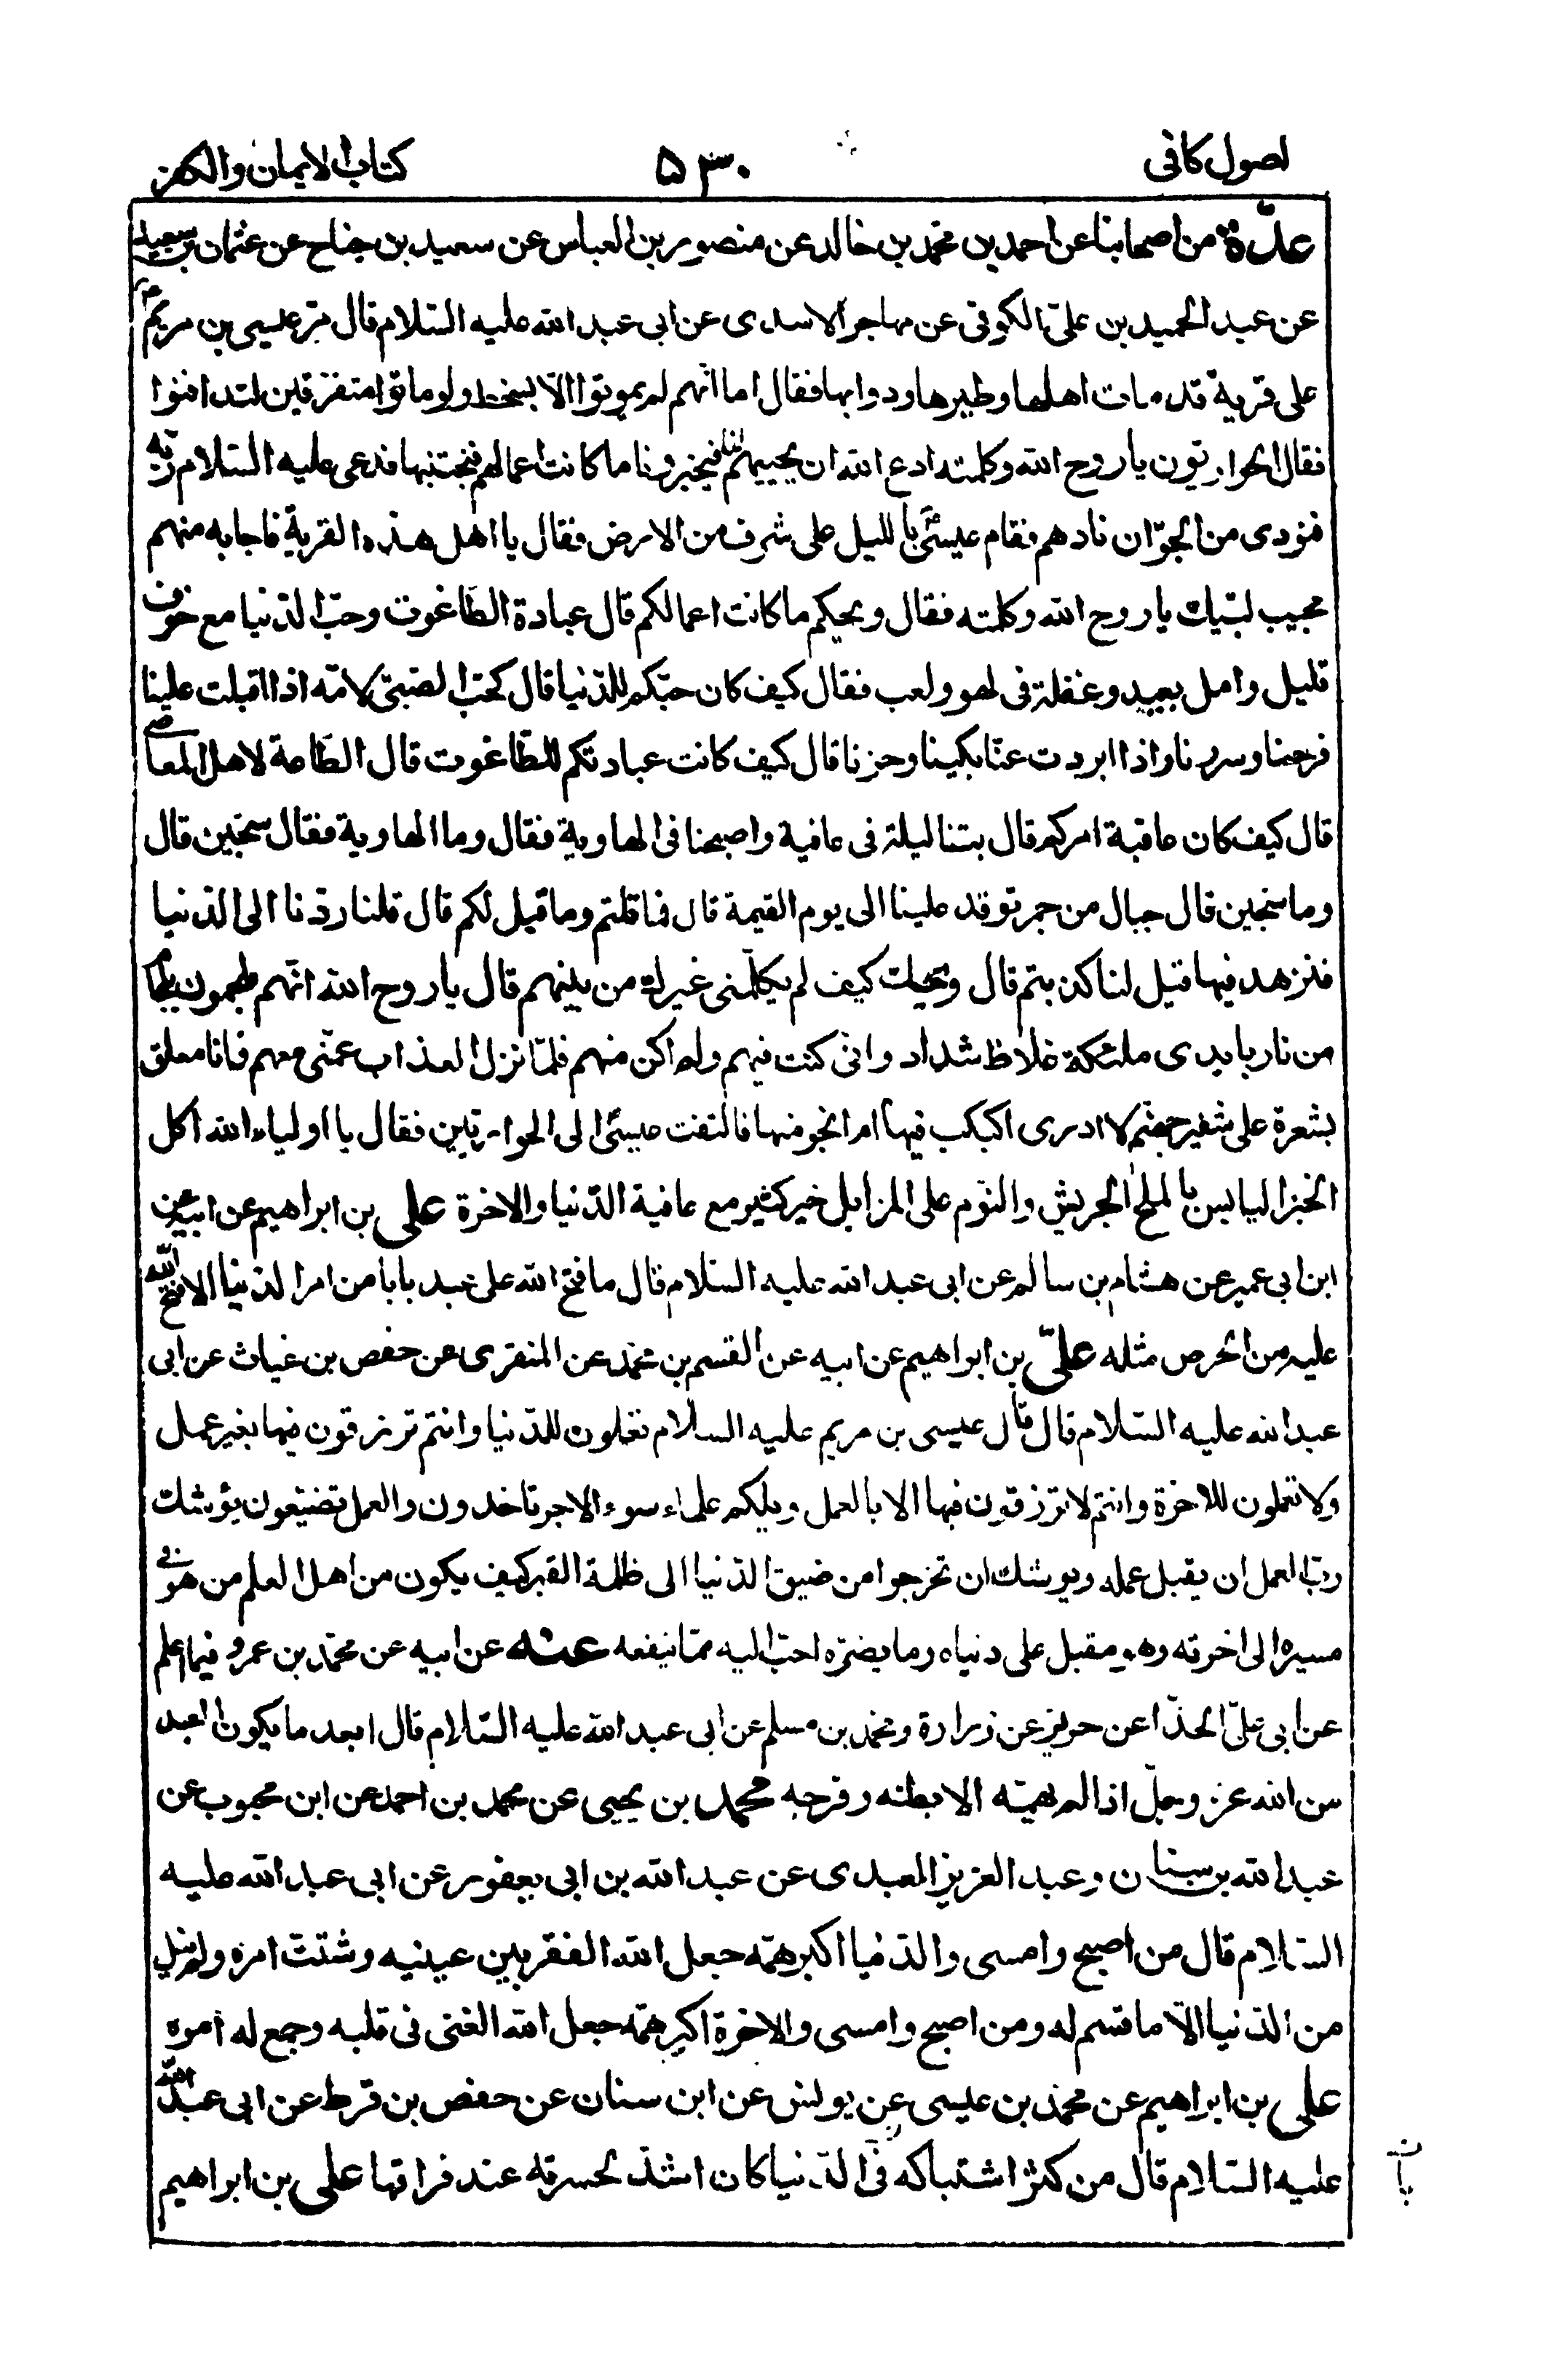 اصول كافى ۵۳۰ كتاب الايمان والكفر
عدّة من اصحابنا عن احمد بن محمد بن خالد عن منصور بن العباس عن سعيد بن جناح عن عثمان بن سعيد
عن عبد الحميد بن علىّ الكوفى عن مهاجر الاسدى عن ابى عبد الله عليه السّلام قال مرّ عيسى بن مريم ع
على قرية قد مات اهلها وطيرها ودوابها فقال اما انّهم لم يموتوا الّا بسخط ولو ماتوا متفرّقين لتدافنوا
فقال الحواريّون يا روح الله وكلمته ادع الله ان يحييهم لنا فيخبرونا ما كانت اعمالهم فنجتنبها فدعى عليه السّلام ربّه
فنودى من الجوّ ان نادهم فقام عيسى ع بالليل على شرف من الارض فقال يا اهل هذه القرية فاجابه منهم
مجيب لبّيك يا روح الله وكلمته فقال ويحكم ما كانت اعمالكم قال عبادة الطّاغوت وحبّ الدّنيا مع خوف
قليل وامل بعيد وغفلة فى لهو ولعب فقال كيف كان حبّكم للدّنيا قال كحبّ الصّبىّ لامّه اذا اقبلت علينا
فرحنا وسررنا واذا ادبردت عنّا بكينا وحزنا قال كيف كانت عبادتكم للطّاغوت قال الطّاعة لاهل المعاصى
قال كيف كان عاقبة امركم قال بتنا ليلة فى عافية واصبحنا فى الهاوية فقال وما الهاوية فقال سجّين قال
وما سجّين قال جبال من جمر توقد علينا الى يوم القيمة قال فما قلتم وما قيل لكم قال قلنا ردّنا الى الدّنيا
فنزهد فيها قيل لنا كذبتم قال ويحك كيف لم يكلّمنى غيرك من بينهم قال يا روح الله انّهم ملجمون بلجام
من نار بايدى ملئكة غلاظ شداد وانّى كنت فيهم ولم اكن منهم فلمّا نزل العذاب عمّنى معهم فانا معلق
بشعرة على شفير جهنّم لا ادرى اكبكب فيها ام انجو منها فالتفت عيسى ع الى الحواريّين فقال يا اولياء الله اكل
الخبز اليابس بالملح الجريش والنّوم على المزابل خير كثير مع عافية الدّنيا والاخرة على بن ابراهيم عن ابيه عن
ابن ابى عمير عن هشام بن سالم عن ابى عبد الله عليه السّلام قال ما فتح الله على عبد بابا من امر الدّنيا الا فتح الله
عليه من الحرص مثله علىّ بن ابراهيم عن ابيه عن القسم بن محمّد عن المنقرى عن حفص بن غياث عن ابى
عبد الله عليه السّلام قال قال عيسى بن مريم عليه السلام تعملون للدّنيا وانتم ترزقون فيها بغير عمل
ولا تعملون للاخرة وانتم لا ترزقون فيها الا بالعمل ويلكم علماء سوء الاجر تاخدون والعمل تضيّعون يوشك
ربّ العمل ان يقبل عمله ويوشك ان تخرجوا من ضيق الدّنيا الى ظلمة القبر كيف يكون من اهل العلم من هو فى
مسيره الى اخرته وهو مقبل على دنياه وما يضرّه احبّ اليه ممّا ينفعه عنه عن ابيه عن محمّد بن عمرو فيما اعلم
عن ابى علىّ الحذّا عن حريز عن زرارة ومحمّد بن مسلم عن ابى عبد الله عليه السّلام قال ابعد ما يكون العبد
من الله عز وجلّ اذا لم يهمّه الا بطنه وفرجه محمد بن يحيى عن محمد بن احمد عن ابن محبوب عن
عبد الله بن سنان وعبد العزيز العبدى عن عبد الله بن ابى يعفور عن ابى عبد الله عليه
السّلام قال من اصبح وامسى والدّنيا اكبر همّه جعل الله الفقر بين عينيه وشتّت امره ولم ينل
من الدّنيا الّا ما قسم له ومن اصبح وامسى والاخرة اكبر همّه جعل الله الغنى فى قلبه وجمع له امره
على بن ابراهيم عن محمّد بن عيسى عن يونس عن ابن سنان عن حفص بن قرط عن ابى عبد الله
عليه السّلام قال من كثر اشتباكه فى الدّنيا كان اشدّ لحسرته عند فراقها على بن ابراهيم